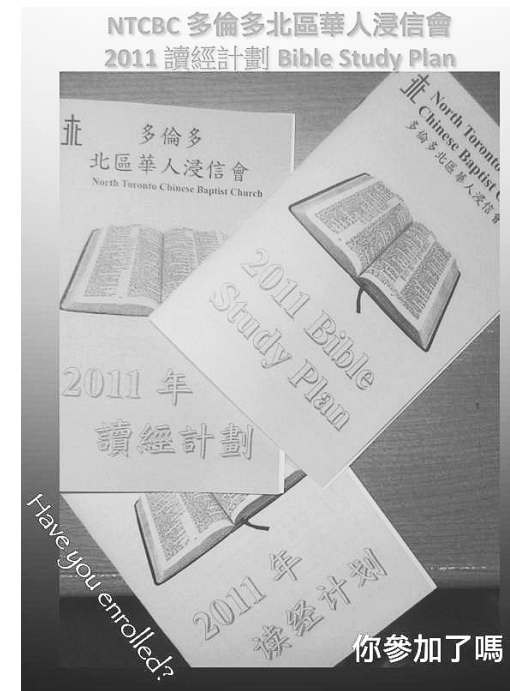 NTCBC 多倫多北區華人浸信會
2011 讀經計劃 Bible Study Plan
多倫多
北區華人浸信會
North Toronto Chinese Baptist Church
2011 年
讀經計劃
North Toronto
Chinese Baptist C
多倫多北區華人浸信會
2011 Bible
Study Plan
2011 年
读经计划
Have you enrolled?
你參加了嗎